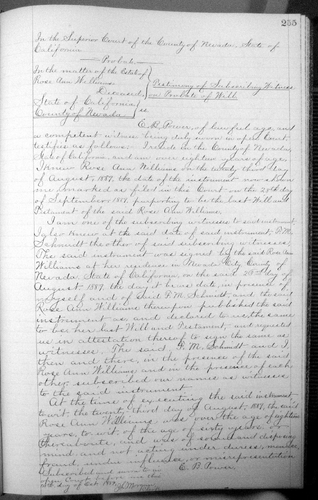 255
In the Superior Court of the County of Nevada, State of
California
Probate
In the matter of the Estate of
Rose Ann Williams
Deceased
Testimony of Subscribing Witness
on Probate of Will
State of California
County of Nevada
ss.
E. R. Power, of lawful age, and
a competent witness being duly sworn in open Court
testifies as follows: I reside in the County of Nevada
State of California and am over eighteen years of age.
I knew Rose Ann Williams on the twenty third day
of August, 1887, the date of the instrument now shown
me marked as filed in this Court on the day
of September 1887, purporting to be the last Will and
Testament of the said Rose Ann Williams.
I am one of the subscribing witnesses to said instrument
I also knew at the said date of said instrument, F. M.
Schmidt the other of said subscribing witnesses.
The said instrument was signed by the said Rose Ann
Williams at her residence in Nevada City, County of
Nevada, State of California, on the said 23rd day of
August, 1887, the day it bears date, in presence of
myself and of said F. M. Schmidt, and the said
Rose Ann Williams thereupon published the said
instrument as and declared to us the same
to be her last Will and Testament, and requested
us in attestation thereof to sign the same as
witnesses. The said F. M. Schmidt and I
then and there, in the presence of the said
Rose Ann Williams and in the presence of each
other subscribed our names as witnesses
to the said instrument.
At the time of executing the said instrument,
to wit, the twenty third day of August, 1887, the said
Rose Ann Williams was over the age of eighteen
years, to wit of the age of sixty years, or
thereabouts, and was of sound and disposing
mind and not acting under duress, menace,
fraud, undue influence or misrepresentation
E. R. Power
Subscribed and sworn to in
open Court this
day of